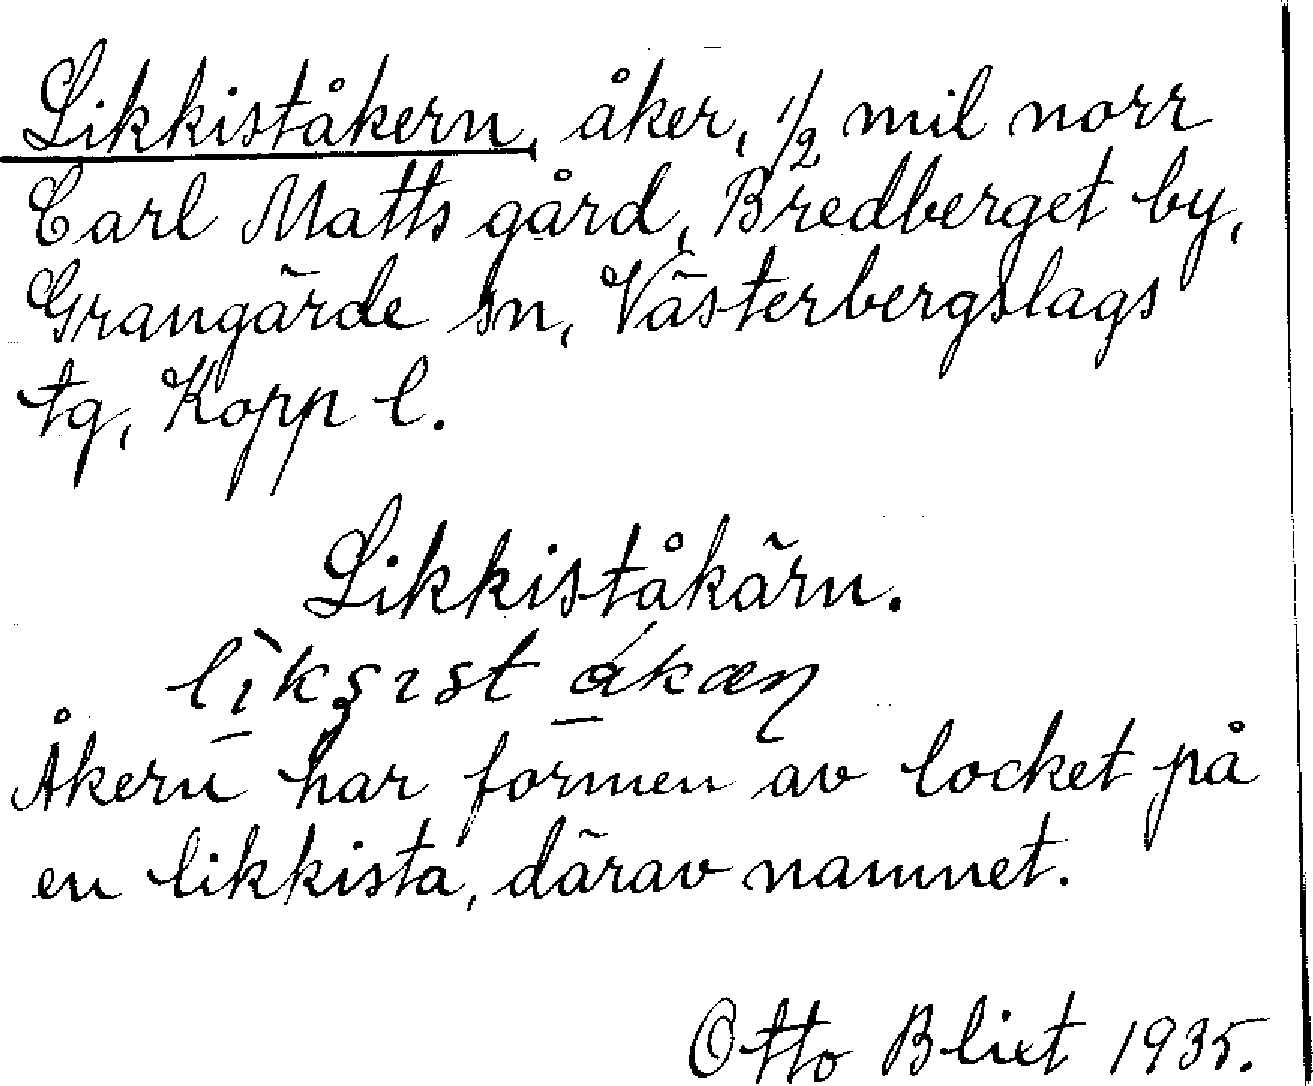 Likkiståkern, åker, 1/2 mil norr
Carl Matts gård, Bredberget by,
Grangärde sn, Västerbergslags
tg, Kopp l.
Likkiståkärn.
Åkern har formen av locket på
en likkista, därav namnet.
Otto Blixt 1935.